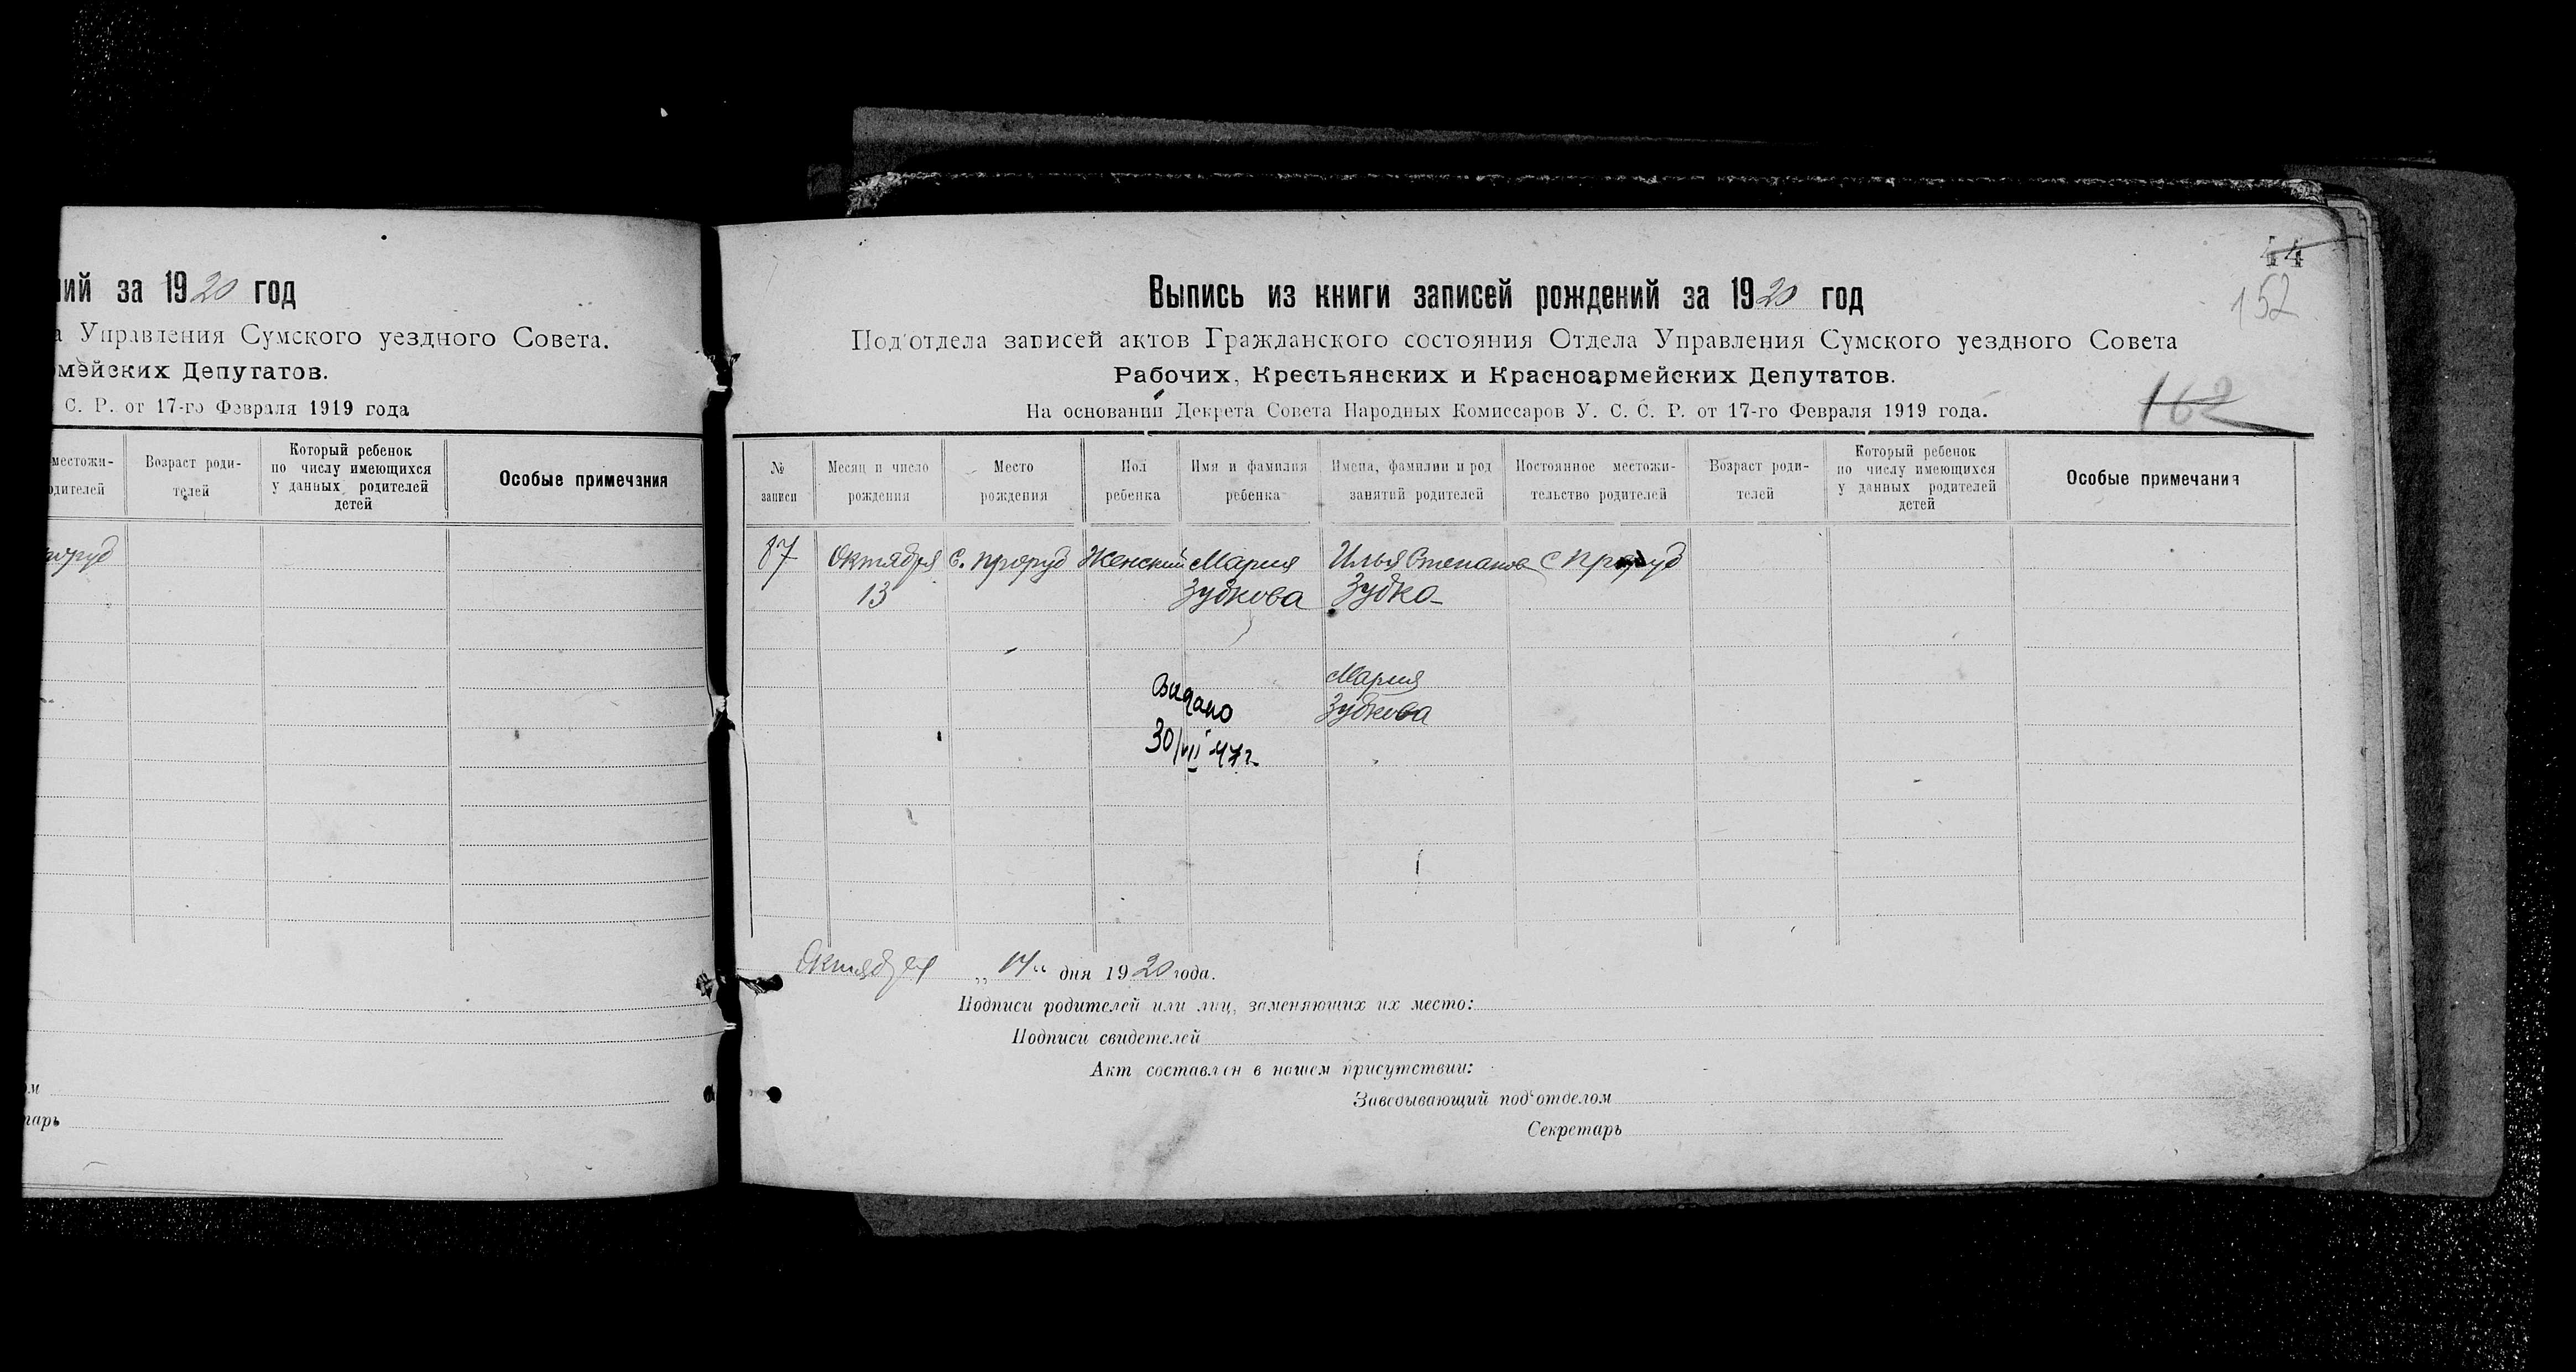 ий за 1920 год
Управления Сумского уездного Совета.
мейских Депутатов.
С. Р. от 17-го Февраля 1919 года
местожи-
одителей
Возраст роди-
телей
Который ребенок
по числу имеющихся
у данных родителей
детей
Особые примечания
тарь
44
152
162
Выпись из книги записей рождений за 1920 год
Под'отдела записей актов Гражданского состояния Отдела Управления Сумского уездного Совета
Рабочих, Крестьянских и Красноармейских Депутатов.
На основании Декрета Совета Народных Комиссаров У. С. С. Р. от 17-го Февраля 1919 года.
№
записи
Месяц и число
рождения
Место
рождения
Пол
ребенка
Имя и фамилия
ребенка
Имена, фамилии и род
занятий родителей
Постоянное местожи-
тельство родителей
Возраст роди-
телей
Который ребенок
по числу имеющихся
у данных родителей
детей
Особые примечания
87 Октября с. Проруб Женский Мария Илья Степанов с Проруб
13 Зубкова Зубко
Мария
Зубкова
Видано
30/VII 47г
Октября „14" дня 1920 года.
Подписи родителей или лиц, заменяющих их место:
Подписи свидетелей
Акт составлен в нашем присутствии:
Заведывающий под'отделом
Секретарь